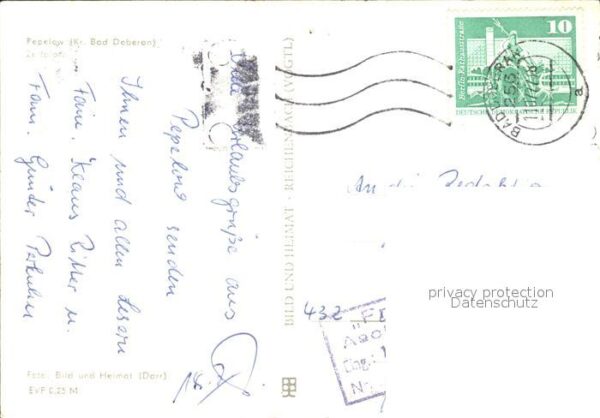 Pepelow (Kr. Bad Doberan)
Zeltplatz
Viele Urlaubsgrüße aus
Pepelow senden
Ihnen und allen Lesern
Fam. Klaus Ritter u.
Fam. Günter
Foto: Bild und Heimat (Darr)
EVP 0,25 M
BILD UND HEIMAT · REICHENBACH (VOGTL)
10
DEUTSCHE DEMOKRATISCHE REPUBLIK
BAD DOBERAN
253
a
An die Redaktion
432
privacy protection
Datenschutz